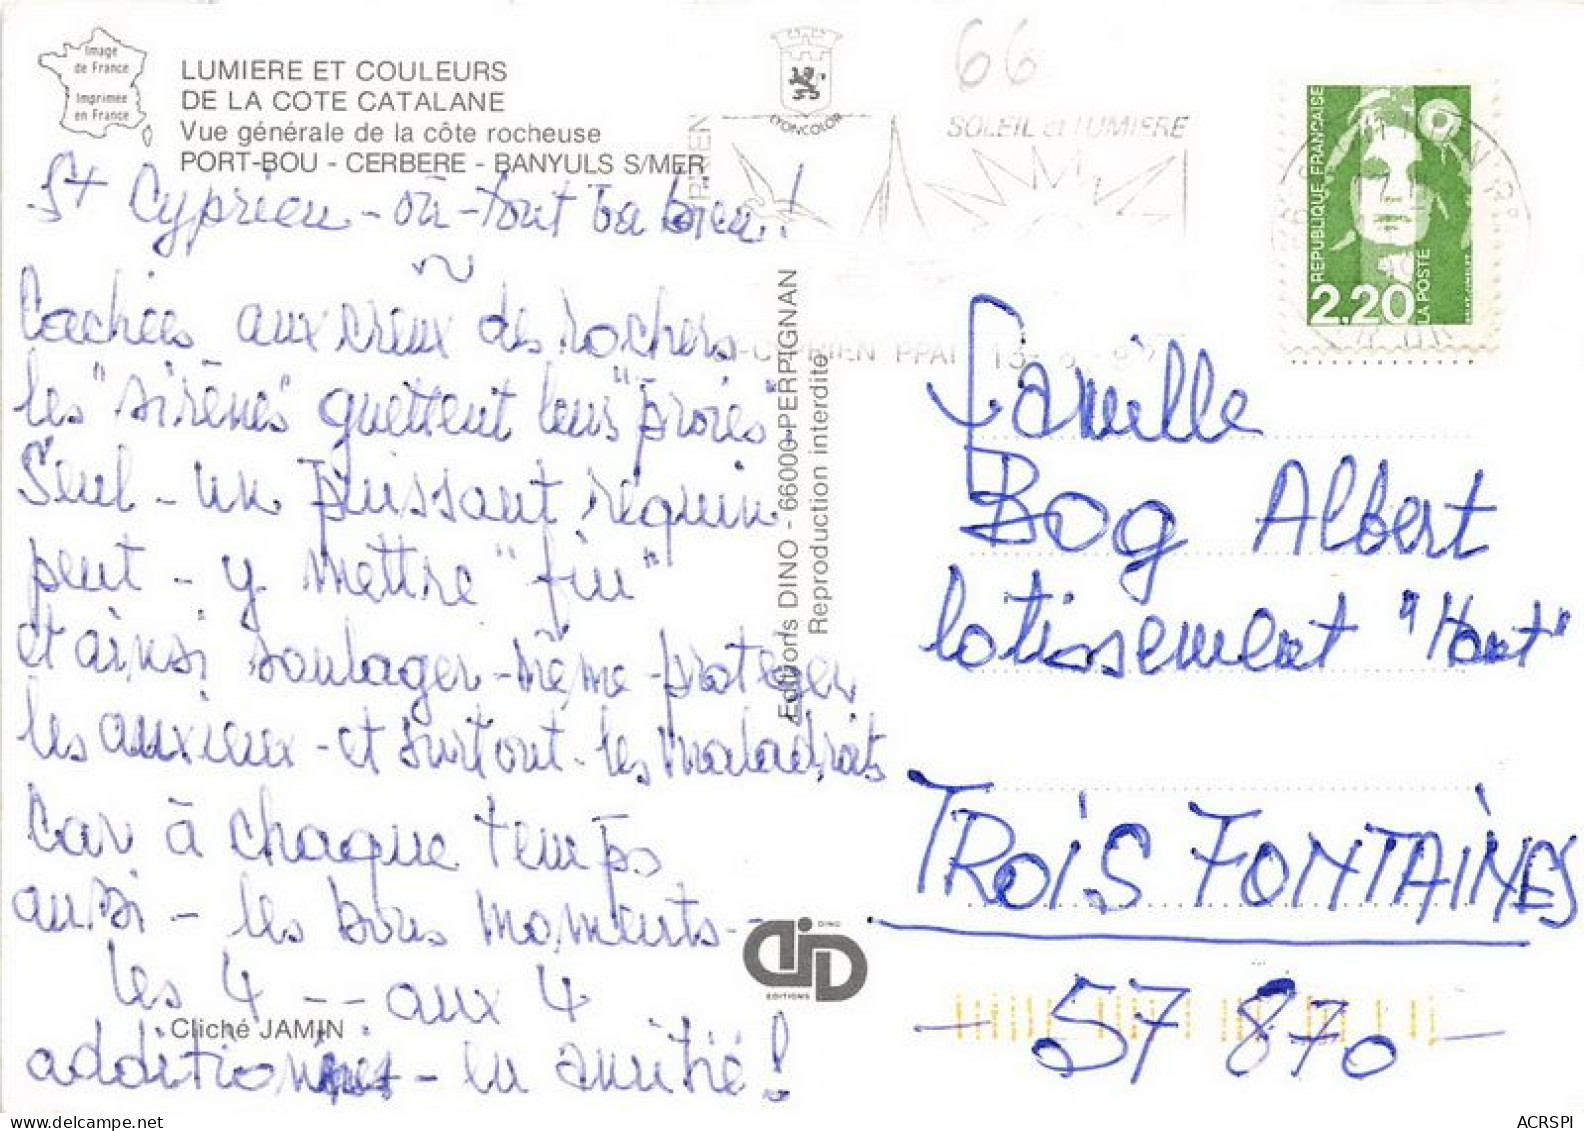 Image
de France
Imprimée
en France
LUMIERE ET COULEURS
DE LA COTE CATALANE
Vue générale de la côte rocheuse
PORT-BOU - CERBERE - BANYULS S/MER
St Cyprien - où - tout va bien !
Cachées aux creux des rochers
les "sirênes" guettent leurs "proies"
Seul - un puissant requin
peut - y mettre "fin"
et ainsi soulager - même - protéger
les anxieux - et surtout - les maladroits
Car à chaque temps
aussi - les bons moments -
les 4 -- aux 4
additionnés - en amitié !
Cliché JAMIN
Editions DINO - 66000 PERPIGNAN
Reproduction interdite
DINO
EDITIONS
LYONCOLOR
66
SOLEIL et LUMIERE
-CYPRIEN PPAL 13-
REPUBLIQUE FRANÇAISE
2,20
LA POSTE
Famille
Bog Albert
lotissement "Haut"
TROIS FONTAINES
- 57 870 -
ACRSPI